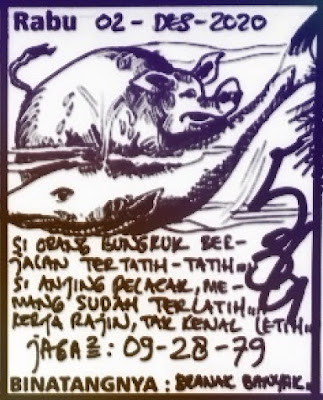 Rabu 02 - DES - 2020
SI ORANG BUNGKUK BER-
JALAN TERTATIH-TATIH,,
SI ANJING PELACAK, ME-
MANG SUDAH TERLATIH,,
KERJA RAJIN, TAK KENAL LETIH,,
JAGA2 : 09-28-79
BINATANGNYA : BRANAK BANYAK